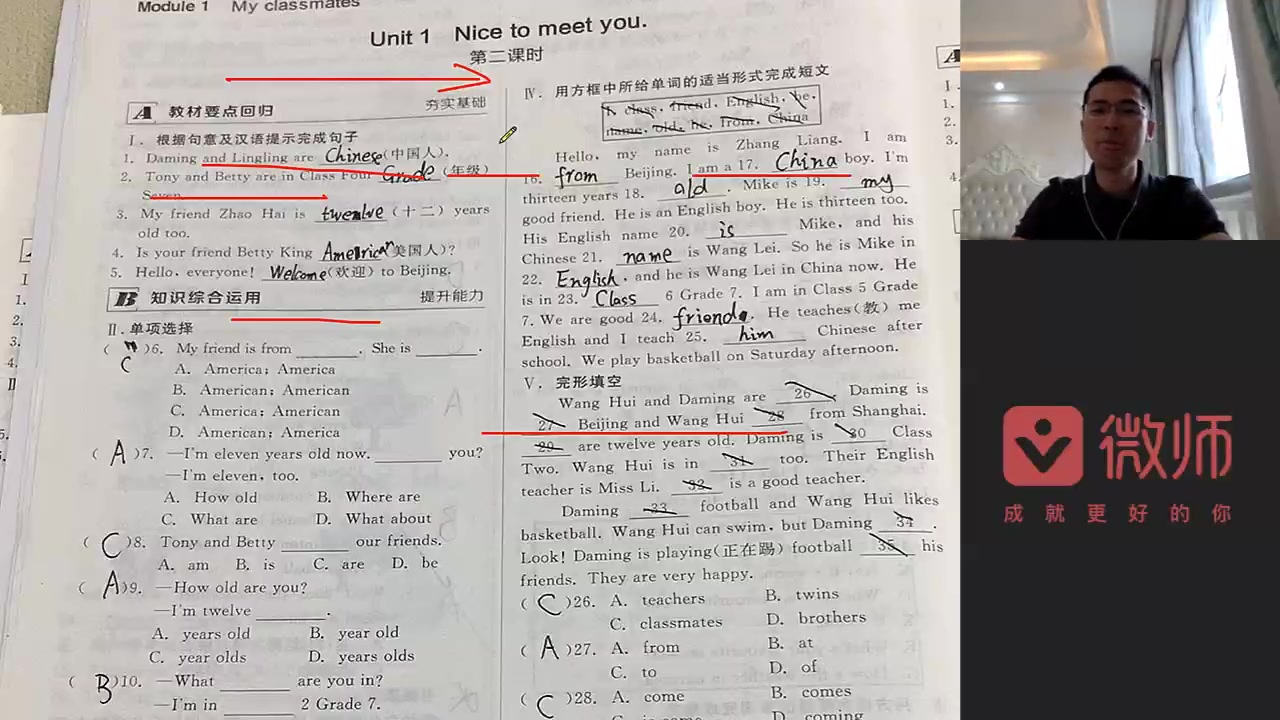 Module 1 My classmates
Unit 1 Nice to meet you.
第二课时
A 教材要点回归 夯实基础
Ⅰ. 根据句意及汉语提示完成句子
1. Daming and Lingling are Chinese (中国人).
2. Tony and Betty are in Class Four Grade (年级)
Seven.
3. My friend Zhao Hai is twemlve (十二) years
old too.
4. Is your friend Betty King American (美国人)?
5. Hello, everyone! Welcome (欢迎) to Beijing.
B 知识综合运用 提升能力
Ⅱ. 单项选择
( C )6. My friend is from ______. She is ______.
A. America; America
B. American; American
C. America; American
D. American; America
( A )7. —I'm eleven years old now. ______ you?
—I'm eleven, too.
A. How old B. Where are
C. What are D. What about
( C )8. Tony and Betty ______ our friends.
A. am B. is C. are D. be
( A )9. —How old are you?
—I'm twelve ______.
A. years old B. year old
C. year olds D. years olds
( B )10. —What ______ are you in?
—I'm in ______ 2 Grade 7.
Ⅳ. 用方框中所给单词的适当形式完成短文
I, class, friend, English, be,
name, old, he, from, China
Hello, my name is Zhang Liang. I am
16. from Beijing. I am a 17. China boy. I'm
thirteen years 18. old . Mike is 19. my
good friend. He is an English boy. He is thirteen too.
His English name 20. is Mike, and his
Chinese 21. name is Wang Lei. So he is Mike in
22. English , and he is Wang Lei in China now. He
is in 23. Class 6 Grade 7. I am in Class 5 Grade
7. We are good 24. friends. He teaches(教) me
English and I teach 25. him Chinese after
school. We play basketball on Saturday afternoon.
Ⅴ. 完形填空
Wang Hui and Daming are 26 . Daming is
27 Beijing and Wang Hui 28 from Shanghai.
29 are twelve years old. Daming is 30 Class
Two. Wang Hui is in 31 too. Their English
teacher is Miss Li. 32 is a good teacher.
Daming 33 football and Wang Hui likes
basketball. Wang Hui can swim, but Daming 34 .
Look! Daming is playing(正在踢) football 35 his
friends. They are very happy.
( C )26. A. teachers B. twins
C. classmates D. brothers
( A )27. A. from B. at
C. to D. of
( C )28. A. come B. comes
D. coming
微师
成就更好的你